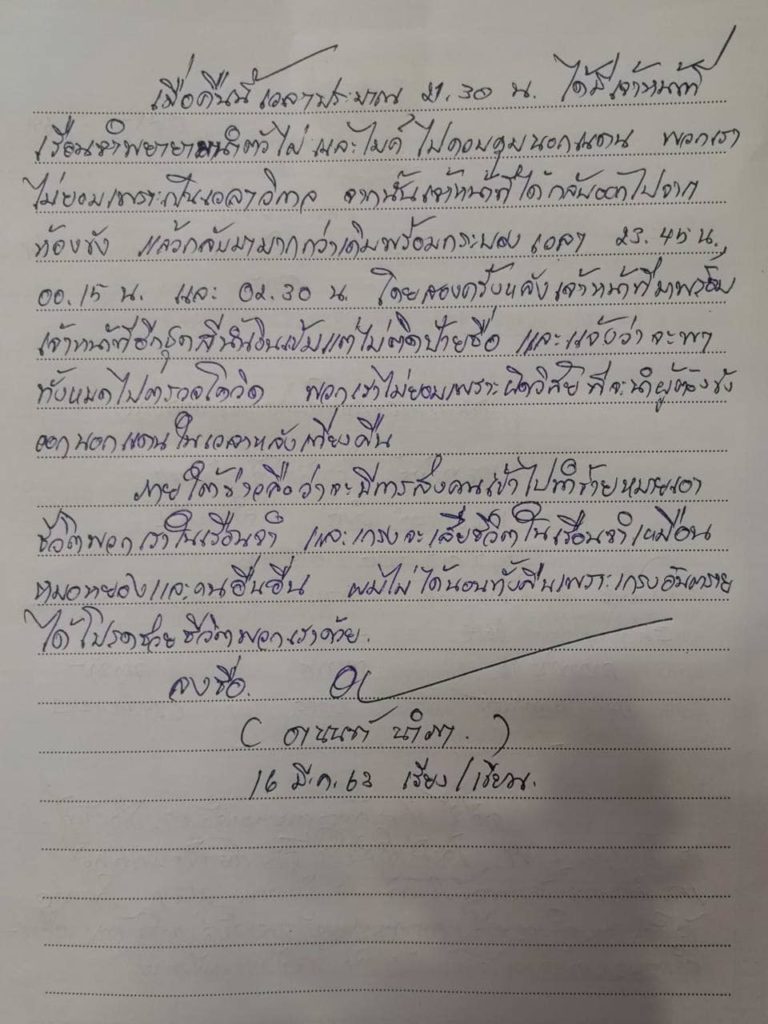 เมื่อคืนนี้ เวลาประมาณ 21.30 น. ได้มีเจ้าหน้าที่
เรือนจำพยายามนำตัวไผ่ และไมค์ ไปควบคุมนอกแดน พวกเรา
ไม่ยอมเพราะเป็นเวลาวิกาล จากนั้นเจ้าหน้าที่ได้กลับออกไปจาก
ห้องขัง แล้วกลับมามากกว่าเดิมพร้อมกระบอง เวลา 23.45 น.,
00.15 น. และ 02.30 น. โดยสองครั้งหลังเจ้าหน้าที่มาพร้อม
เจ้าหน้าที่อีกชุดสีน้ำเงินเข้มแต่ไม่ติดป้ายชื่อ และแจ้งว่าจะพา
ทั้งหมดไปตรวจโควิด พวกเราไม่ยอมเพราะผิดวิสัยที่จะนำผู้ต้องขัง
ออกนอกแดนในเวลาหลังเที่ยงคืน
ภายใต้ข่าวลือว่าจะมีการส่งคนเข้าไปทำร้ายหมายเอา
ชีวิตพวกเราในเรือนจำ และเกรงจะเสียชีวิตในเรือนจำเหมือน
หมอหยองและคนอื่นอื่น ผมไม่ได้นอนทั้งคืนเพราะเกรงอันตราย
ได้โปรดช่วยชีวิตพวกเราด้วย.
ลงชื่อ.
( อานนท์ นำภา. )
16 มี.ค. 63 เรียง/เขียน.